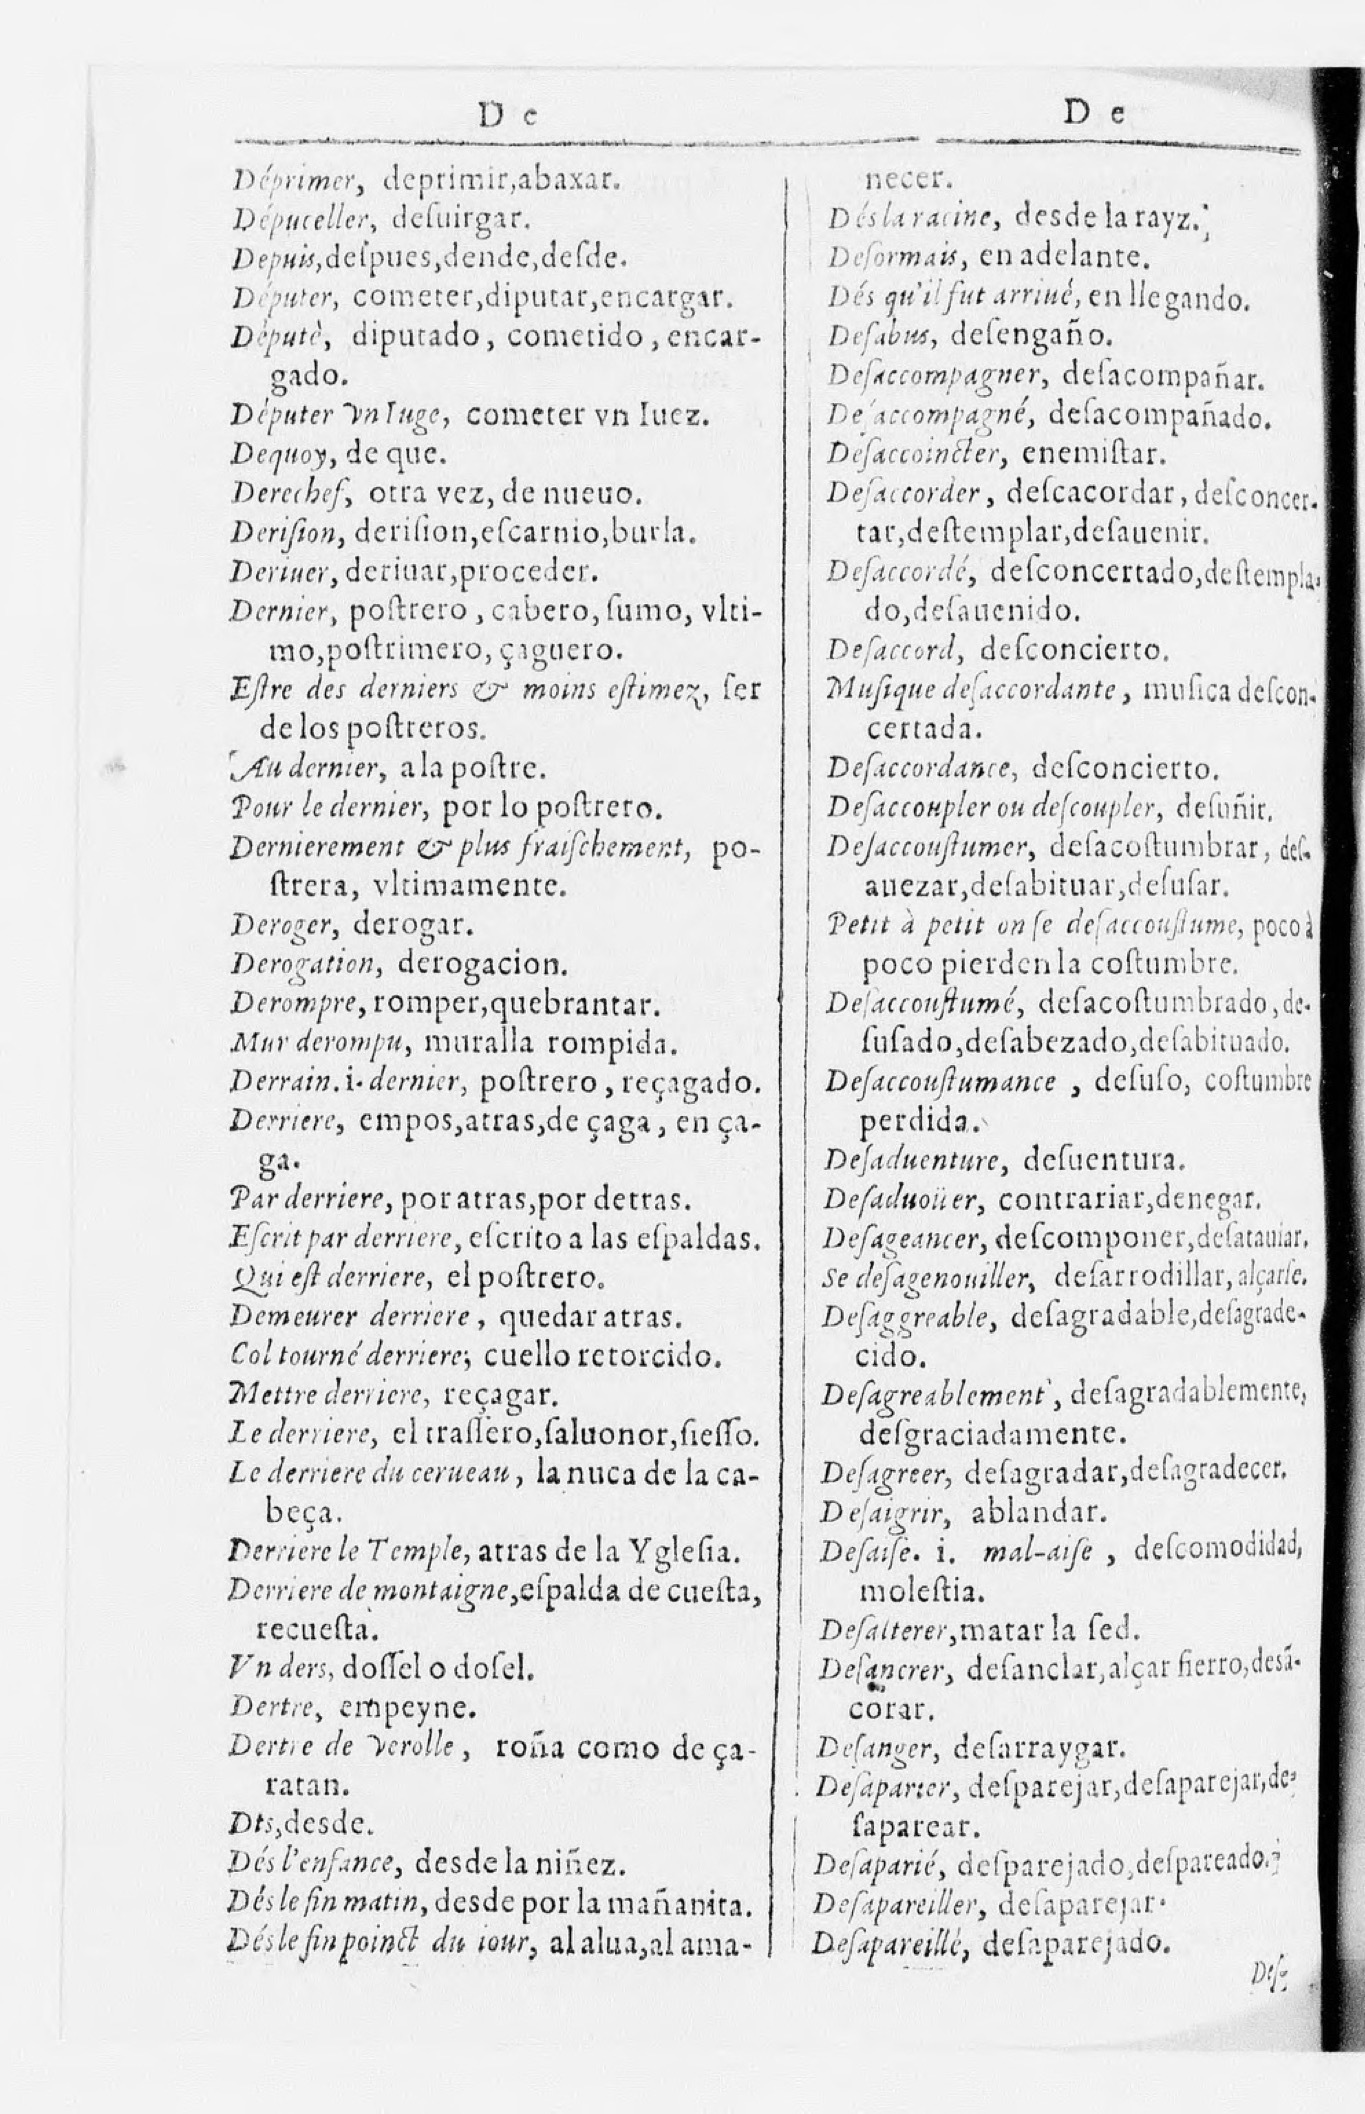 De
Déprimer, deprimir,abaxar.
Dépuceller, deſuirgar.
Depuis,deſpues,dende,deſde.
Députer, cometer,diputar,encargar.
Députè, diputado, cometido, encar-
gado.
Députer vn Iuge, cometer vn Iuez.
Dequoy, de que.
Derechef, otra vez, de nueuo.
Deriſion, deriſion,eſcarnio,burla.
Deriuer, deriuar,proceder.
Dernier, poſtrero, cabero, ſumo, vlti-
mo,poſtrimero, çaguero.
Eſtre des derniers & moins eſtimez, ſer
de los poſtreros.
Au dernier, a la poſtre.
Pour le dernier, por lo poſtrero.
Dernierement & plus fraiſchement, po-
ſtrera, vltimamente.
Deroger, derogar.
Derogation, derogacion.
Derompre, romper,quebrantar.
Mur derompu, muralla rompida.
Derrain. i. dernier, poſtrero, reçagado.
Derriere, empos,atras,de çaga, en ça-
ga.
Par derriere, por atras,por detras.
Eſcrit par derriere, eſcrito a las eſpaldas.
Qui eſt derriere, el poſtrero.
Demeurer derriere, quedar atras.
Col tourné derriere, cuello retorcido.
Mettre derriere, reçagar.
Le derriere, el traſſero,ſaluonor,ſieſſo.
Le derriere du cerueau, la nuca de la ca-
beça.
Derriere le Temple, atras de la Ygleſia.
Derriere de montaigne,eſpalda de cueſta,
recueſta.
Vn ders, doſſel o doſel.
Dertre, empeyne.
Dertre de verolle, roña como de ça-
ratan.
Dés,desde.
Dés l'enfance, desde la niñez.
Dés le fin matin, desde por la mañanita.
Dés le fin poinct du iour, al alua,al ama-
De
necer.
Dés la racine, desde la rayz.
Deſormais, en adelante.
Dés qu'il fut arriué, en llegando.
Deſabus, deſengaño.
Deſaccompagner, deſacompañar.
Deſaccompagné, deſacompañado.
Deſaccoincter, enemiſtar.
Deſaccorder, deſcacordar, deſconcer-
tar,deſtemplar,deſauenir.
Deſaccordé, deſconcertado,deſtempla-
do,deſauenido.
Deſaccord, deſconcierto.
Muſique deſaccordante, muſica deſcon-
certada.
Deſaccordance, deſconcierto.
Deſaccoupler ou deſcoupler, deſuñir.
Deſaccouſtumer, deſacoſtumbrar, deſ-
auezar,deſabituar,deſuſar.
Petit à petit on ſe deſaccouſtume, poco à
poco pierden la coſtumbre.
Deſaccouſtumé, deſacoſtumbrado, de-
ſuſado,deſabezado,deſabituado.
Deſaccouſtumance, deſuſo, coſtumbre
perdida.
Deſaduenture, deſuentura.
Deſaduoüer, contrariar,denegar.
Deſageancer, deſcomponer,deſatauiar.
Se deſagenouiller, deſarrodillar, alçarſe.
Deſaggreable, deſagradable,deſagrade-
cido.
Deſagreablement, deſagradablemente,
deſgraciadamente.
Deſagreer, deſagradar,deſagradecer.
Deſaigrir, ablandar.
Deſaiſe. i. mal-aiſe, deſcomodidad,
moleſtia.
Deſalterer,matar la ſed.
Deſancrer, deſanclar,alçar fierro,desã-
corar.
Deſanger, deſarraygar.
Deſaparier, deſparejar,deſaparejar,de-
ſaparear.
Deſaparié, deſparejado,deſpareado.
Deſapareiller, deſaparejar.
Deſapareillé, deſaparejado.
Deſ-